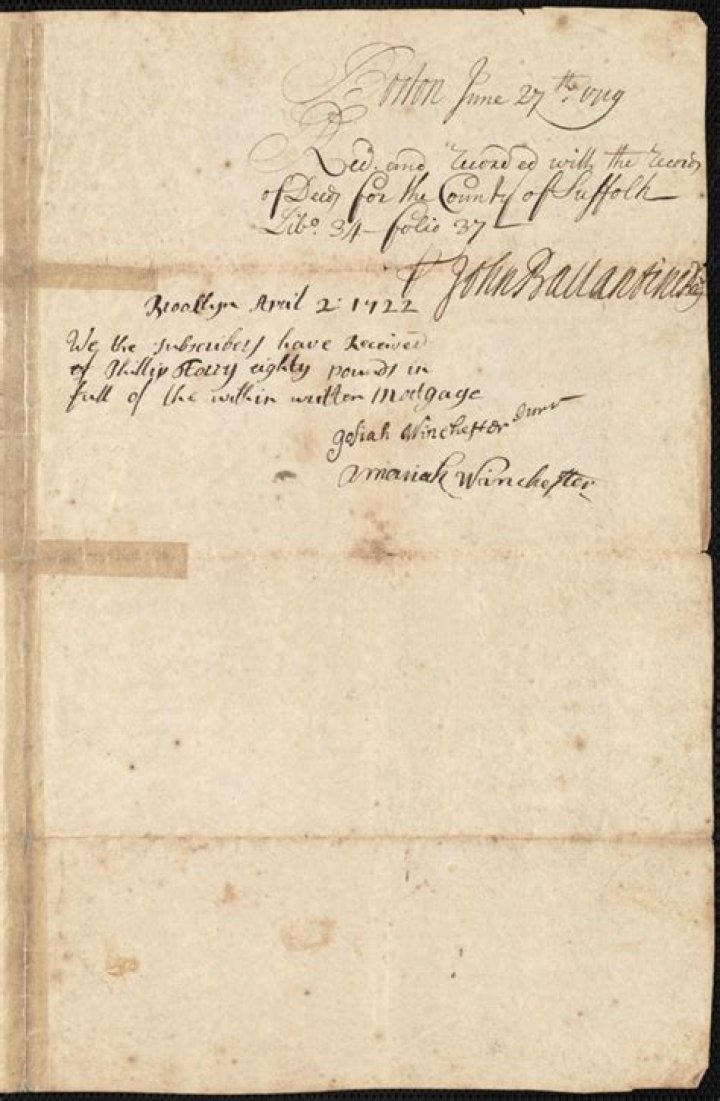 Boston June 27th. 1719
Recd. and Recorded with the Records
of Deeds for the County of Suffolk
Libo. 34 folio 37
John Ballantine
April 2: 1722
We the subscribers have Received
of Phillip eighty pounds in
full of the within written Mortgage
Josiah Winchester
Winchester